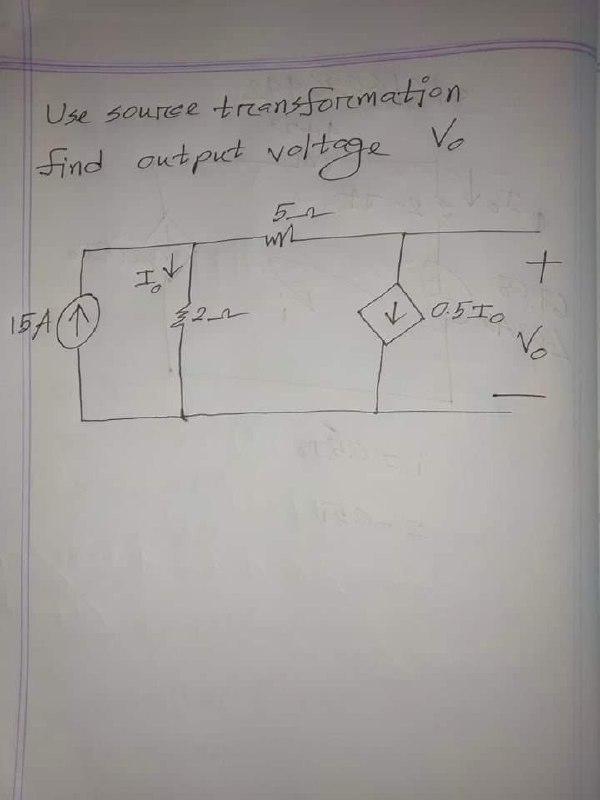 Use source transformation
find output voltage Vo
5Ω
Io ↓
15A ↑
2Ω
↓ 0.5Io
+
Vo
−